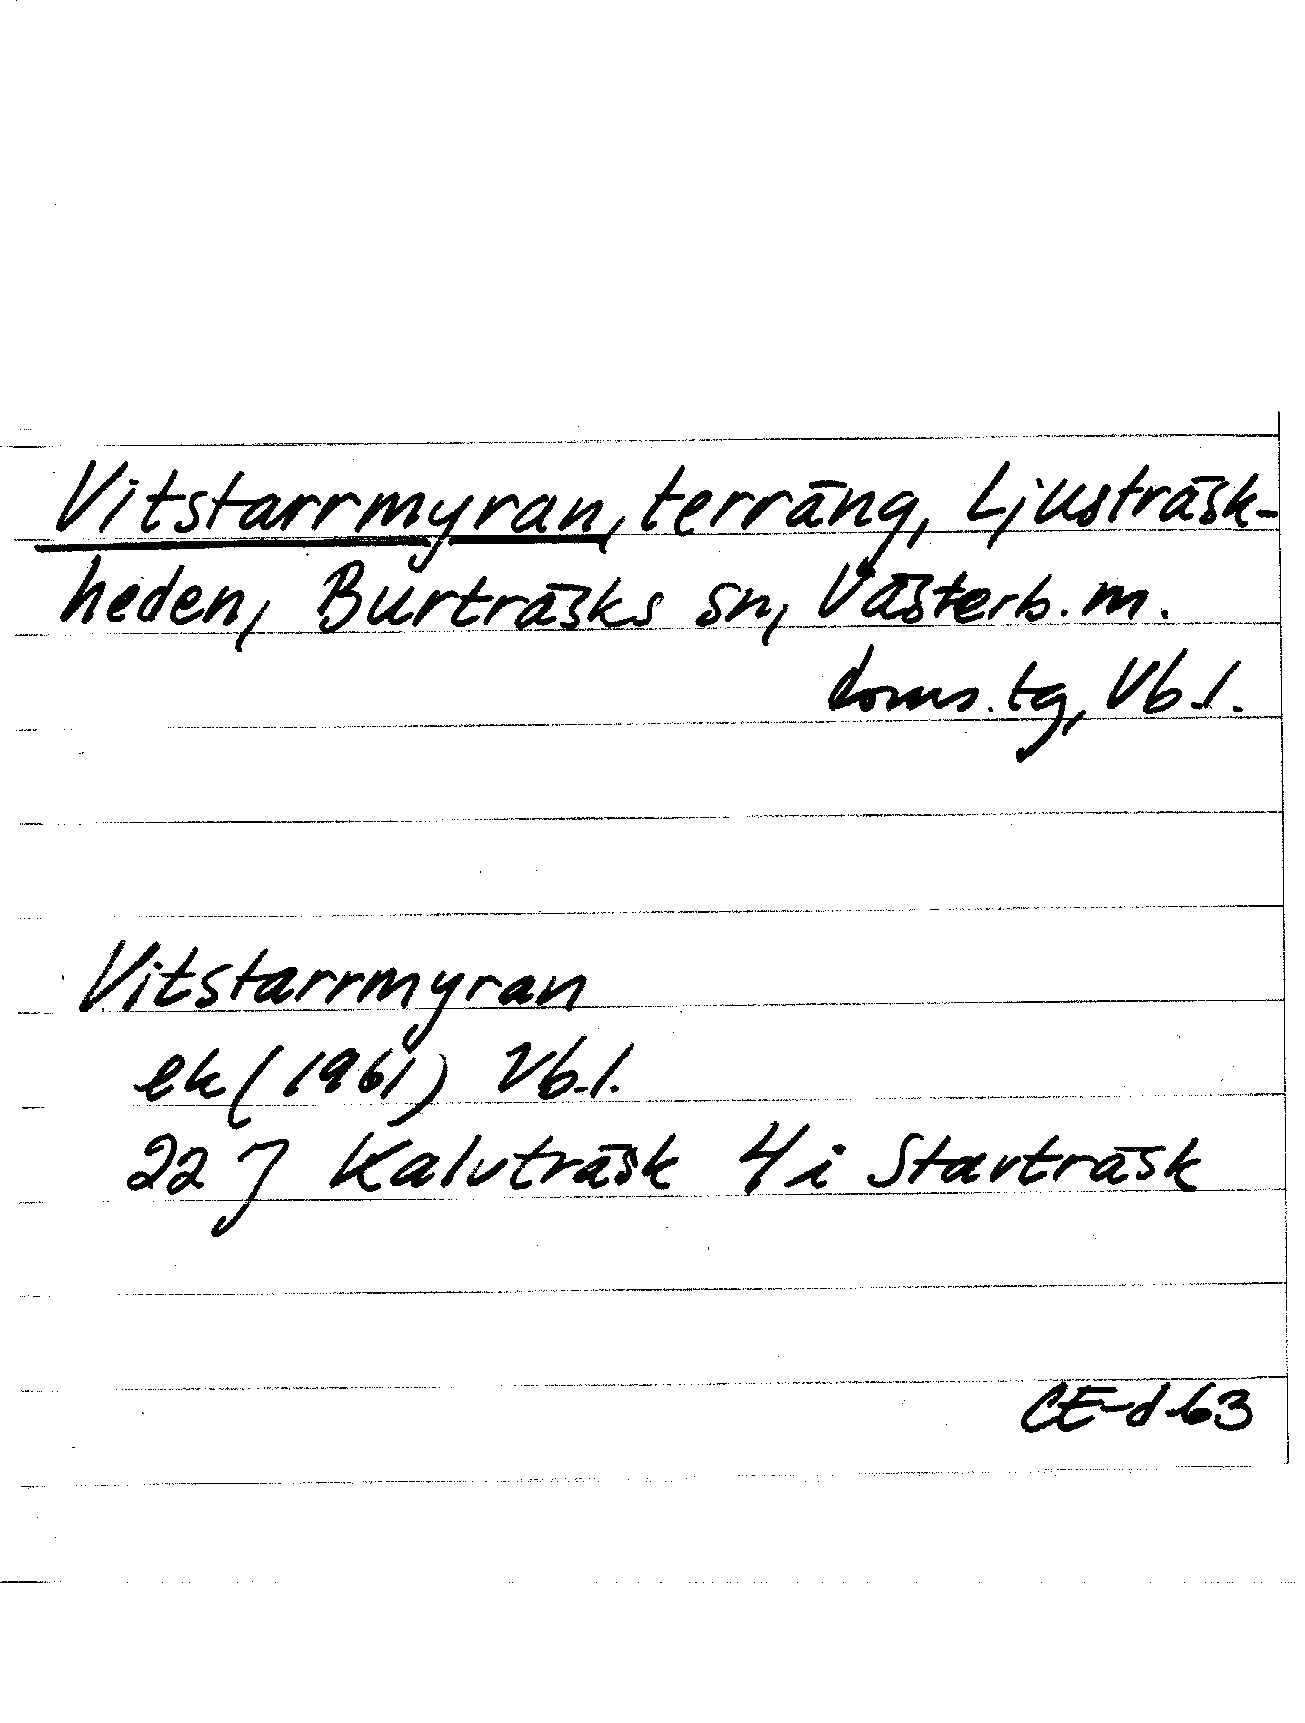 Vitstarrmyran, terräng, Ljusträsk-
heden, Burträsks sn, Västerb. m.
doms. tg, Vb. l.
Vitstarrmyran
ek (1961) Vb. l.
22 J Kalvträsk 4 i Stavträsk
CE-d 63